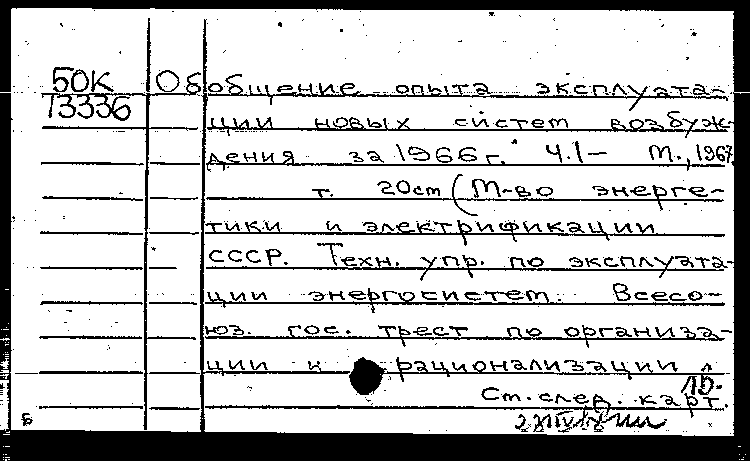 50К Обобщение опыта эксплуата-
13336 ции новых систем возбуж-
дения за 1966г. Ч.1– М., 1967.
т. 20cm (М-во энерге-
тики и электрификации
СССР. Техн. упр. по эксплуата-
ции энергосистем. Всесо-
юз. гос. трест по организа-
ции и рационализации
См. след. карт.
Б